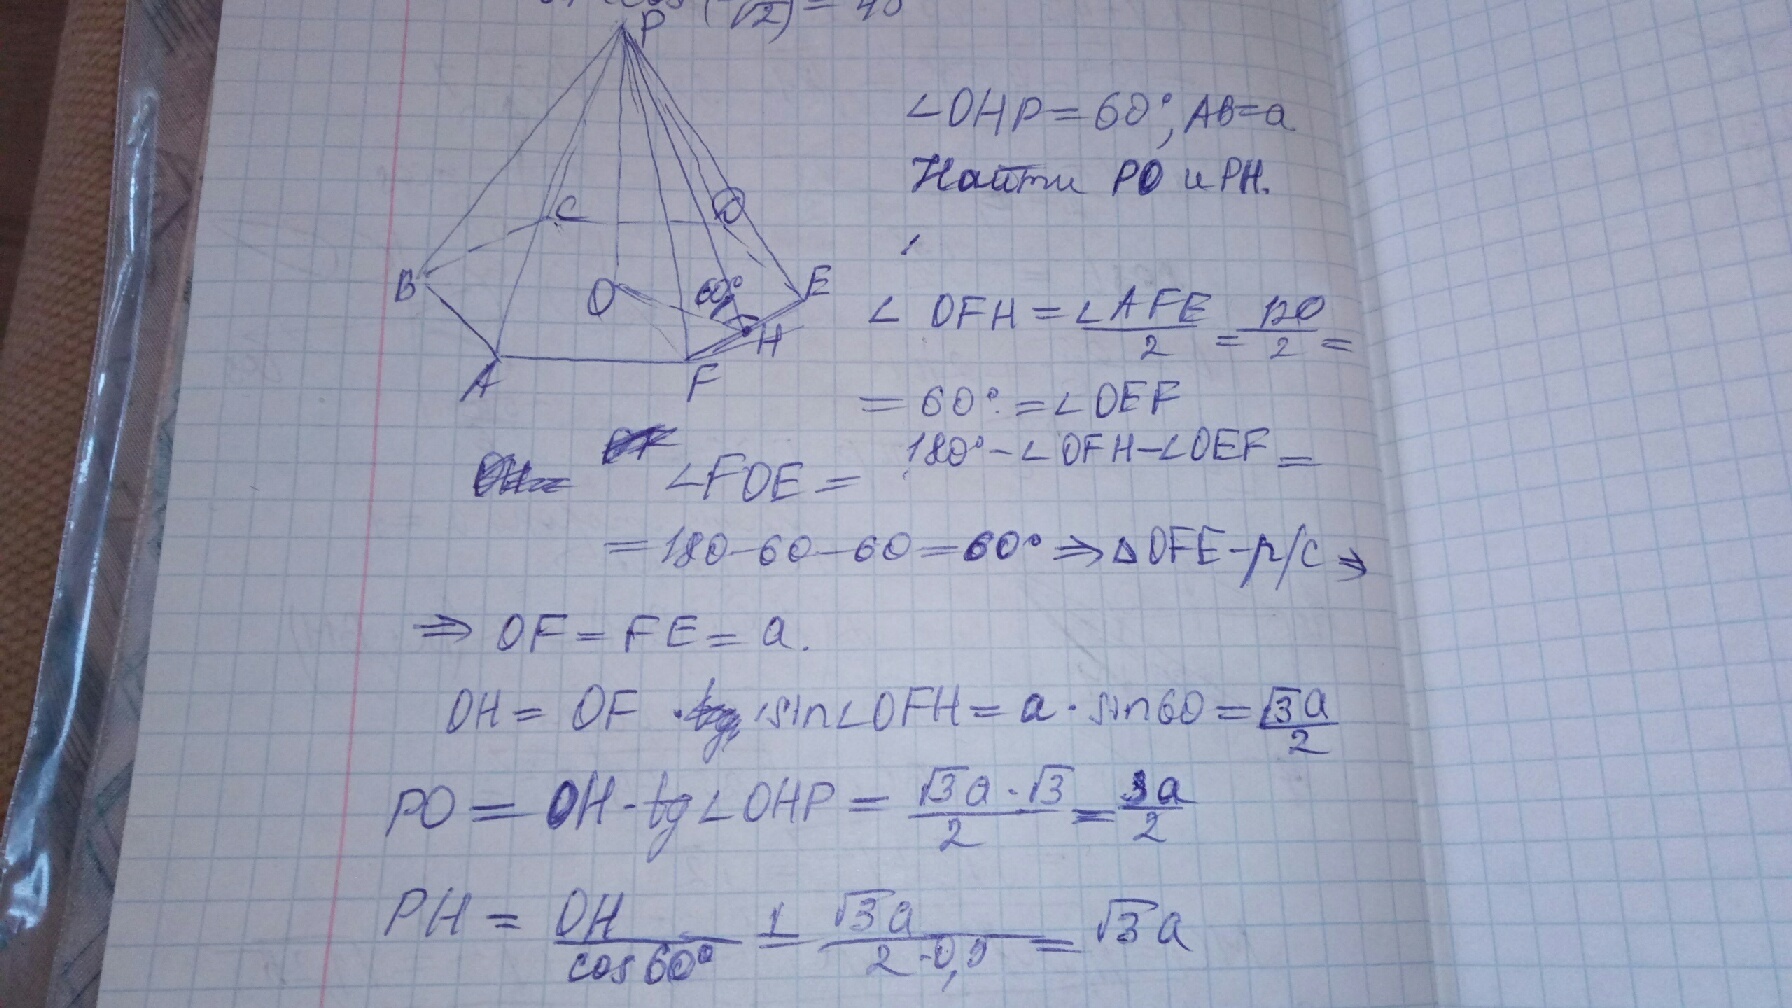 P
∠OHP = 60°, AB = a
Найти PO и PH.
C
B
O
60°
E
H
A
F
∠OFH = ∠AFE/2 = 120/2 =
= 60° = ∠OEF
∠FOE = 180° - ∠OFH - ∠OEF =
= 180 - 60 - 60 = 60° ⇒ △OFE - р/с ⇒
⇒ OF = FE = a.
OH = OF · sin∠OFH = a · sin60 = √3a/2
PO = OH · tg∠OHP = √3a · √3/2 = 3a/2
PH = OH/cos60° = √3a/2·0,5 = √3a